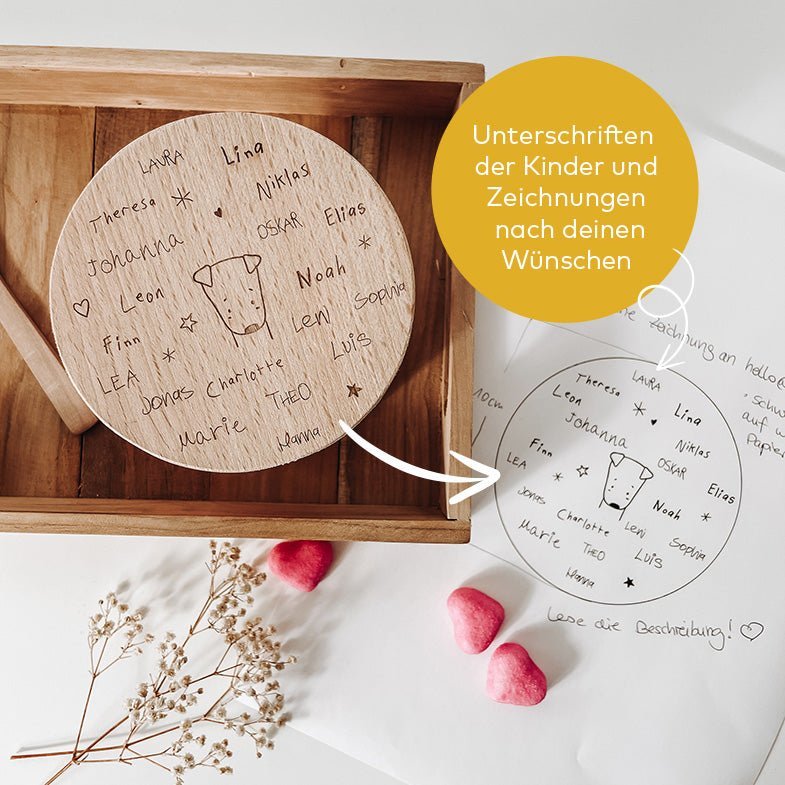 Unterschriften
der Kinder und
Zeichnungen
nach deinen
Wünschen
LAURA
Lina
Theresa
Niklas
Johanna
OSKAR
Elias
Leon
Noah
Finn
Leni
Sophia
LEA
Luis
Jonas
Charlotte
THEO
Marie
Hanna
Zeichnung an hello@
10cm
auf w
Papier
Theresa
LAURA
Leon
Lina
Johanna
Niklas
Finn
OSKAR
LEA
Elias
Noah
Jonas
Charlotte
Leni
Marie
THEO
Luis
Sophia
Hanna
Lese die Beschreibung!